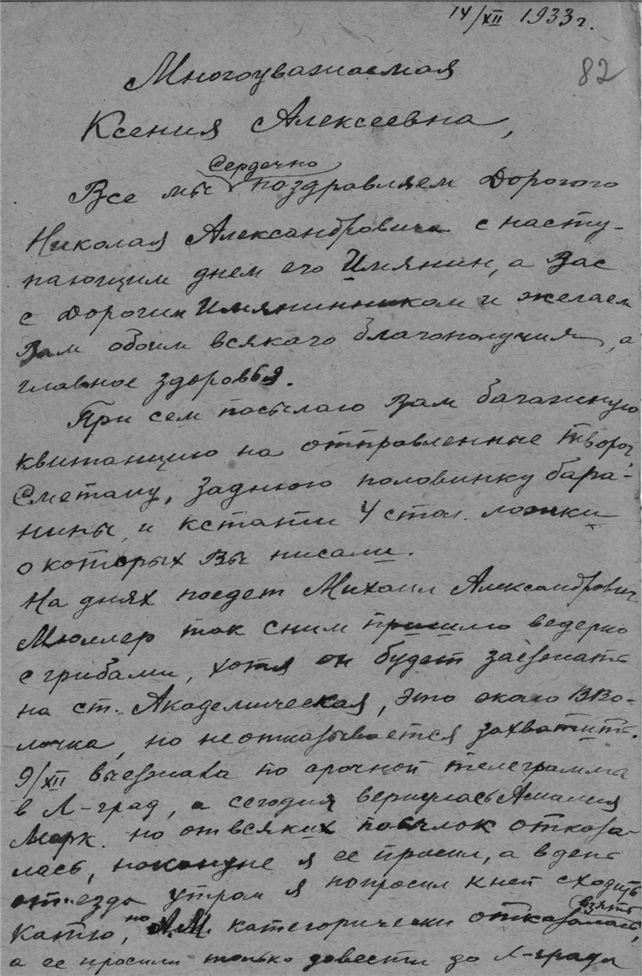 14/XII 1933 г.
82
Многоуважаемая
Ксения Алексеевна,
Сердечно
Все мы поздравляем Дорогого
Николая Александровича с насту-
пающим днем его Имянин, а Вас
с Дорогим Имянинником и желаем
Вам обоим всякаго благополучия, а
главное здоровья.
При сем посылаю Вам багажную
квитанцию на отправленные творог
Сметану, заднюю половинку бара-
нины, и кстати 4 стол. ложки
о которых Вы писали.
На днях поедет Михаил Александрович
Мюллер так с ним пришлю ведерко
с грибами, хотя он будет заезжать
на ст. Академическая, это около В Во-
лочка, но не отказывается захватить.
9/XII выезжала по срочной телеграмма
в Л-град, а сегодня вернулась Амалия
Марк. но от всяких посылок отказа-
лась, наконуне я ее просил, а в день
отъезда утром я попросил к ней сходить
Катю, но А.М. категорически отказалась взять
а ее просили только довести до Л-града